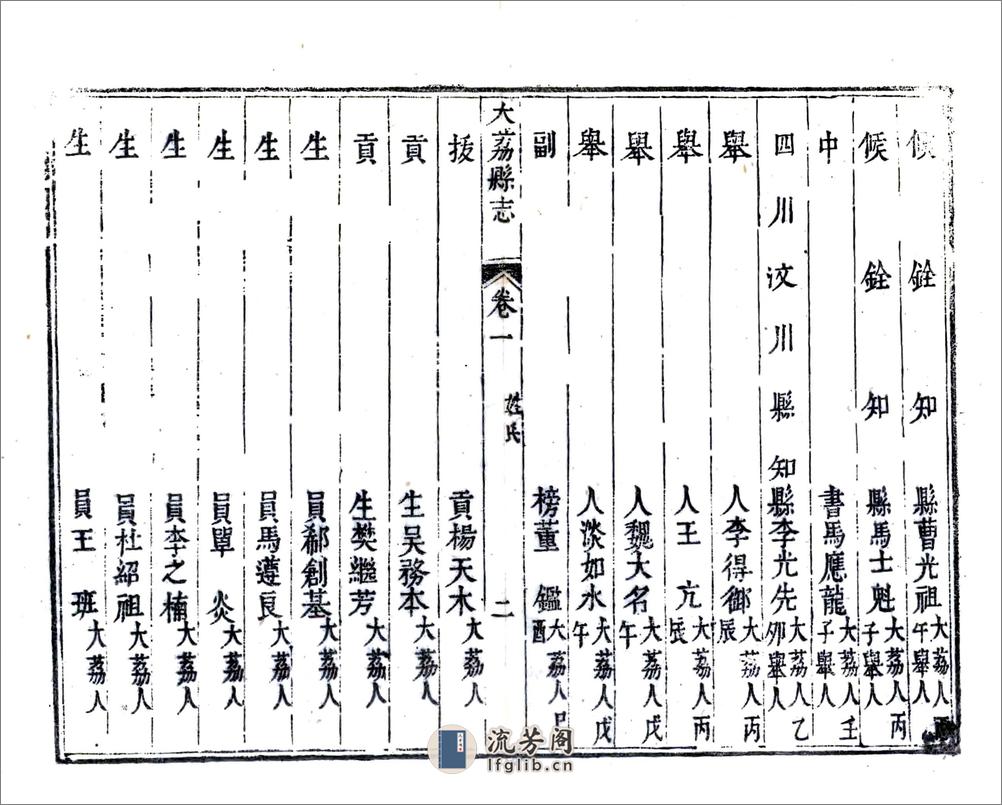 候銓知縣曹光祖大荔人丙午舉人
候銓知縣馬士魁大荔人丙子舉人
中書馬應龍大荔人壬子舉人
四川汶川縣知縣李光先大荔人乙卯舉人
舉人李得御大荔人丙辰
舉人王亢大荔人丙辰
舉人魏大名大荔人戊午
舉人淡如水大荔人戊午
副榜董鑑大荔人己酉
大荔縣志 卷一 姓氏 二
拔貢楊天木大荔人
貢生吳務本大荔人
貢生樊繼芳大荔人
生員郗創基大荔人
生員馬遵良大荔人
生員單炎大荔人
生員李之楠大荔人
生員杜紹祖大荔人
生員王班大荔人
流芳阁
lfglib.cn